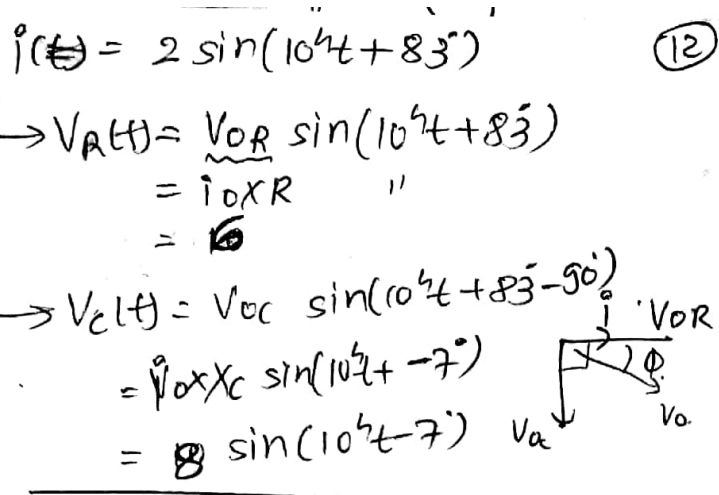 i(t) = 2 sin(10⁴t + 83°)
12
→ VR(t) = VOR sin(10⁴t + 83°)
= i0 x R "
= 6
→ Vc(t) = Voc sin(10⁴t + 83° - 90°)
= i0 x Xc sin(10⁴t + -7°)
= 8 sin(10⁴t - 7°)
i VOR
φ
Vo
Voc